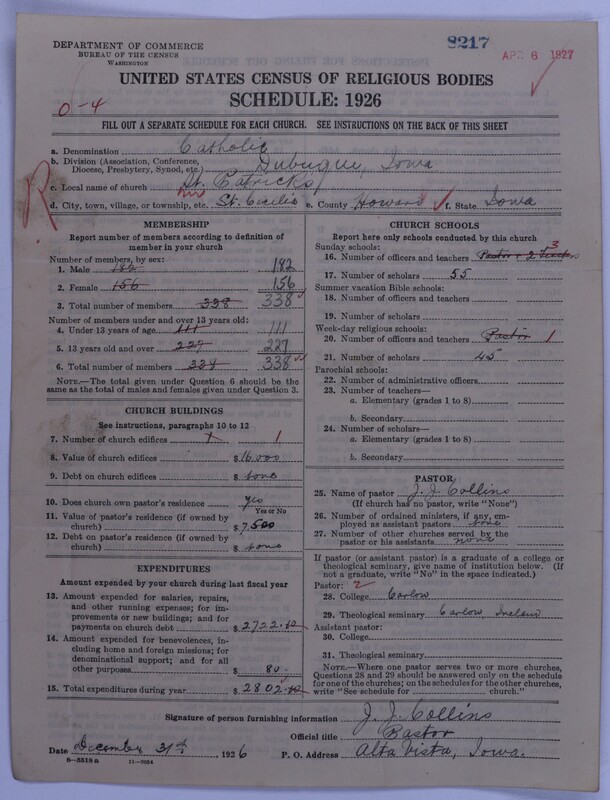 8217
APR 6 1927
DEPARTMENT OF COMMERCE
BUREAU OF THE CENSUS
WASHINGTON
UNITED STATES CENSUS OF RELIGIOUS BODIES
SCHEDULE: 1926
0-4
FILL OUT A SEPARATE SCHEDULE FOR EACH CHURCH. SEE INSTRUCTIONS ON THE BACK OF THIS SHEET
a. Denomination Catholic
b. Division (Association, Conference, Diocese, Presbytery, Synod, etc.) Dubuque, Iowa
c. Local name of church St. Patricks
d. City, town, village, or township, etc. St. Cecilia e. County Howard f. State Iowa
MEMBERSHIP
Report number of members according to definition of
member in your church
Number of members, by sex:
1. Male 182 182
2. Female 156 156
3. Total number of members 338 338
Number of members under and over 13 years old:
4. Under 13 years of age 111 111
5. 13 years old and over 227 227
6. Total number of members 338 338
NOTE.—The total given under Question 6 should be
the same as the total of males and females given under Question 3.
CHURCH BUILDINGS
See instructions, paragraphs 10 to 12
7. Number of church edifices 1 1
8. Value of church edifices $ 16,000
9. Debt on church edifices $ none
10. Does church own pastor's residence yes
Yes or No
11. Value of pastor's residence (if owned by
church) $ 7,500
12. Debt on pastor's residence (if owned by
church) $ none
EXPENDITURES
Amount expended by your church during last fiscal year
13. Amount expended for salaries, repairs,
and other running expenses; for im-
provements or new buildings; and for
payments on church debt $ 2722.42
14. Amount expended for benevolences, in-
cluding home and foreign missions; for
denominational support; and for all
other purposes $ 80
15. Total expenditures during year $ 2802.42
CHURCH SCHOOLS
Report here only schools conducted by this church
Sunday schools:
16. Number of officers and teachers Pastor + 2 Teachers 3
17. Number of scholars 55
Summer vacation Bible schools:
18. Number of officers and teachers
19. Number of scholars
Week-day religious schools:
20. Number of officers and teachers Pastor 1
21. Number of scholars 45
Parochial schools:
22. Number of administrative officers
23. Number of teachers—
a. Elementary (grades 1 to 8)
b. Secondary
24. Number of scholars—
a. Elementary (grades 1 to 8)
b. Secondary
PASTOR
25. Name of pastor J. J. Collins
(If church has no pastor, write "None")
26. Number of ordained ministers, if any, em-
ployed as assistant pastors none
27. Number of other churches served by the
pastor or his assistants none
If pastor (or assistant pastor) is a graduate of a college or
theological seminary, give name of institution below. (If
not a graduate, write "No" in the space indicated.)
Pastor: 2
28. College Carlow
29. Theological seminary Carlow, Ireland
Assistant pastor:
30. College
31. Theological seminary
NOTE.—Where one pastor serves two or more churches,
Questions 28 and 29 should be answered only on the schedule
for one of the churches; on the schedules for the other churches,
write "See schedule for church."
Signature of person furnishing information J. J. Collins
Official title Pastor
Date December 31st 1926 P. O. Address Alta Vista, Iowa.
8—5518a 11—9034